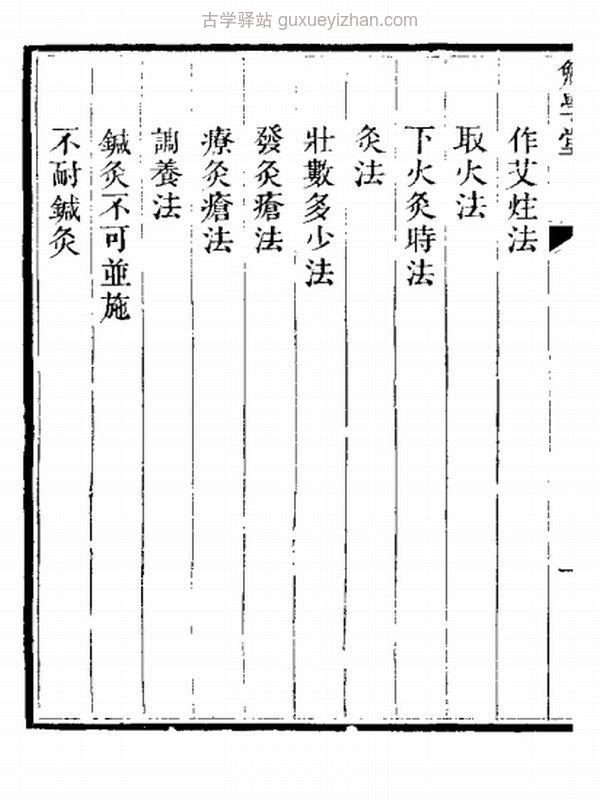 古学驿站 guxueyizhan.com
作艾炷法
取火法
下火灸時法
灸法
壯數多少法
發灸瘡法
療灸瘡法
調養法
鍼灸不可並施
不耐鍼灸